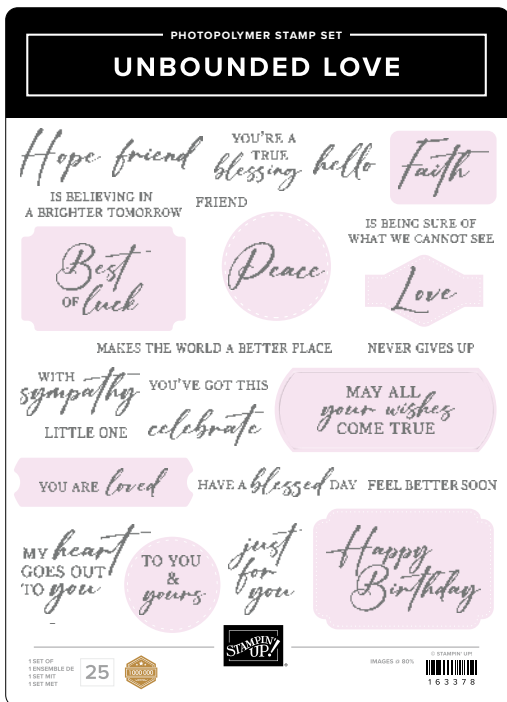 PHOTOPOLYMER STAMP SET
UNBOUNDED LOVE
Hope friend
YOU'RE A
TRUE
blessing
hello
Faith
IS BELIEVING IN
A BRIGHTER TOMORROW
FRIEND
IS BEING SURE OF
WHAT WE CANNOT SEE
Best
OF luck
Peace
Love
MAKES THE WORLD A BETTER PLACE
NEVER GIVES UP
WITH
sympathy
YOU'VE GOT THIS
LITTLE ONE
celebrate
MAY ALL
your wishes
COME TRUE
YOU ARE loved
HAVE A blessed DAY
FEEL BETTER SOON
MY heart
GOES OUT
TO you
TO YOU
&
yours
just
for
you
Happy
Birthday
STAMPIN' UP!
1 SET OF
1 ENSEMBLE DE
1 SET MIT
1 SET MET
25
1 000 000
IMAGES @ 80%
© STAMPIN' UP!
163378